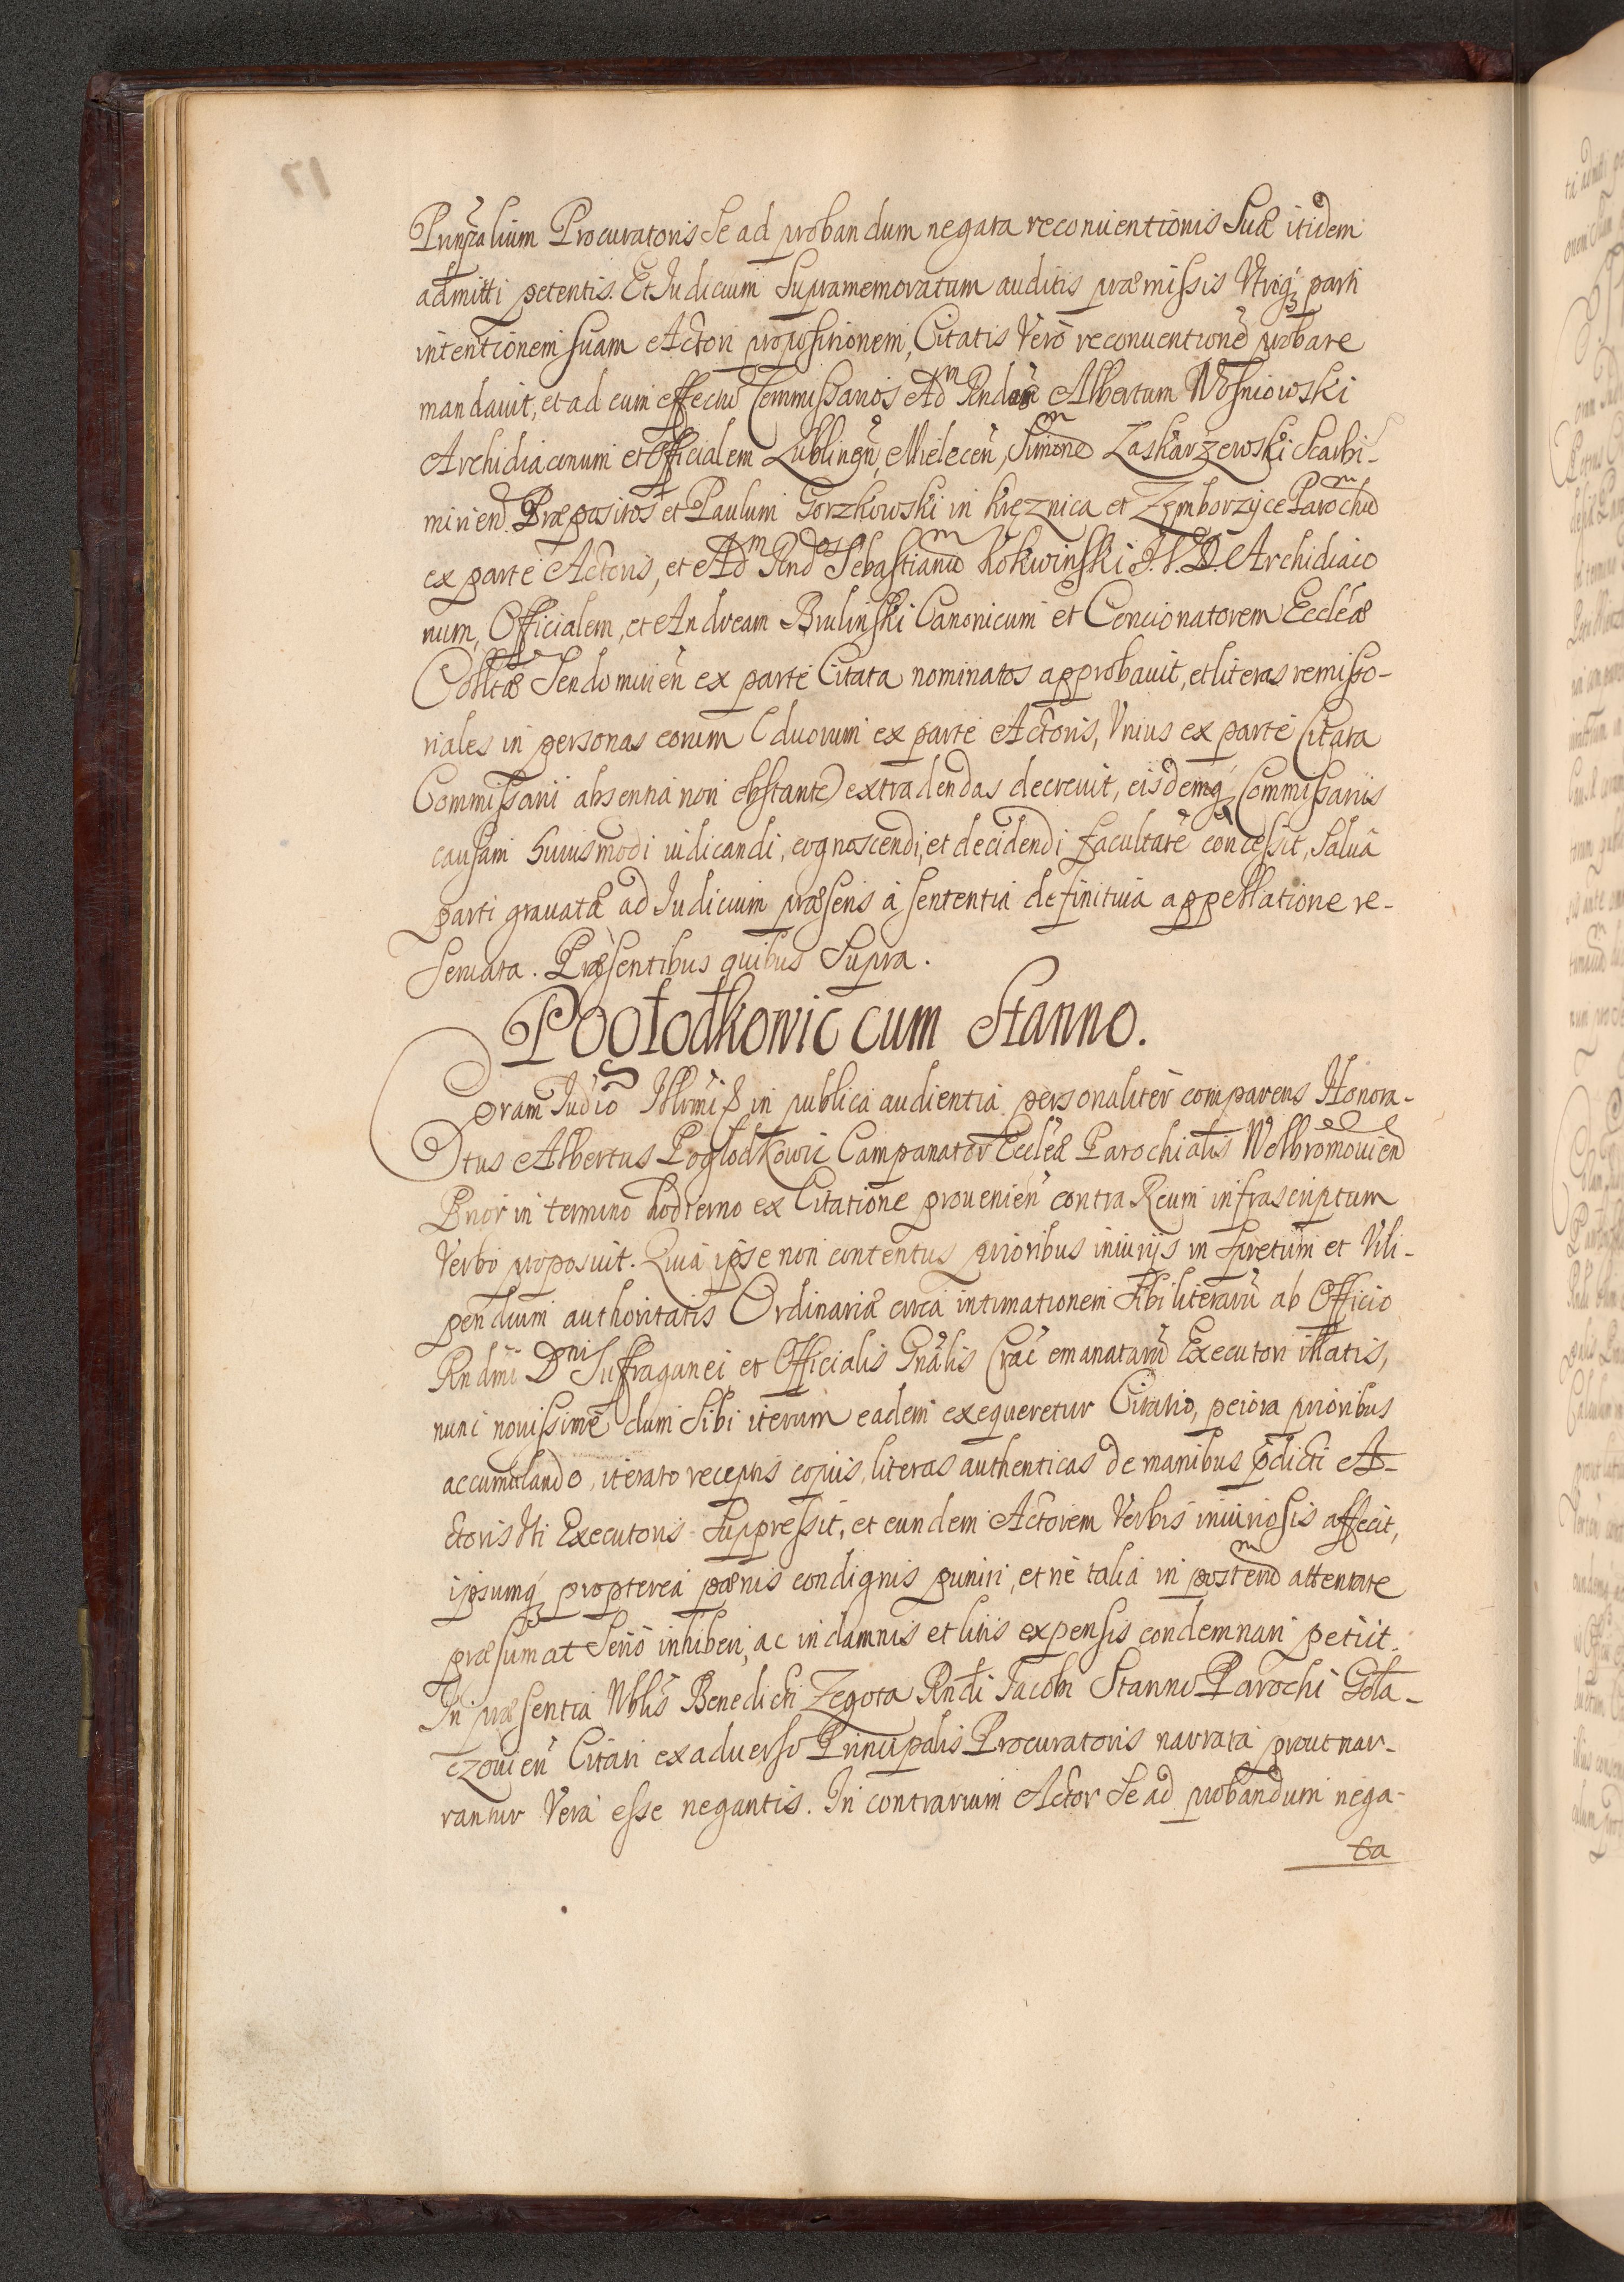 Prinpalium Procuratoris Se ad probandum negata reconuentionis Suæ itidem
admitti petentis. Et Iudicium Supramemoratum auditis præmissis Vtriq3 parti
intentionem suam Actori propositionem, Citatis Verò reconuentionē probare
mandauit, et ad eum effectū Commissarios Adm Rndos Albertum Wosniowski
Archidiaconum et Officialem Lublinen̄, Mielecen̄, Simonē Zaskarzewski Scarbi-
mirien̄. Præpositos et Paulum Gorzkowski in Kręznica et Zęmborzyce Parochū
ex parte Actoris, et Adm Rndos Sebastianū Kokwinski I. V. D. Archidiaco
num, Officialem, et Andream Brulinski Canonicum et Concionatorem Eccleæ
Colltæ Sendomirien̄ ex parte Citata nominatos approbauit, et literas remisso-
riales in personas eorum (duorum ex parte Actoris, Vnius ex parte Citata
Commissarii absentia non obstante) extradendas decreuit, eisdemq3 Commissariis
causam huiusmodi iudicandi, cognoscendi, et decidendi facultatē concessit, Saluâ
parti grauatæ ad Iudicium præsens à sententia definitiua appellatione re-
seruata. Præsentibus quibus Supra.
Pogłodkowic cum Stanno.
Coram Iudīo Illrmi S in publica audientia personaliter comparens Honora-
tus Albertus Poglodkowic Campanator Eccleæ Parochialis Wolbromouien̄
Prior in termino hodierno ex Citatione prouenien̄ contra Reum infrascriptum
Verbo proposuit. Quia ipse non contentus prioribus iniurijs in Spretum et Vili-
pendium authoritatis Ordinariæ circa intimationem Sibi literarū ab Officio
Rndmi Dni Suffraganei et Officialis Gnālis Crac emanatarū Executori illatis,
nunc nouissimè dum Sibi iterum eadem exequeretur Citatio, peiora prioribus
accumulando, iterato receptis copiis, literas authenticas de manibus p̄dicti A-
ctoris Vti Executoris Suppressit, et eundem Actorem Verbis iniuriosis affecit,
ipsumq3 propterea pænis condignis puniri, et ne talia in posterū attentare
præsumat Seriò inhiberi, ac in damnis et litis expensis condemnari petiit.
In præsentia Nblis Benedicti Zegota Rndi Iacobi Stanno Parochi Gola-
czouien̄ Citati ex aduerso Principalis Procuratoris narrata prout nar-
rantur Vera esse negantis. In contrarium Actor Se ad probandum nega-
ta